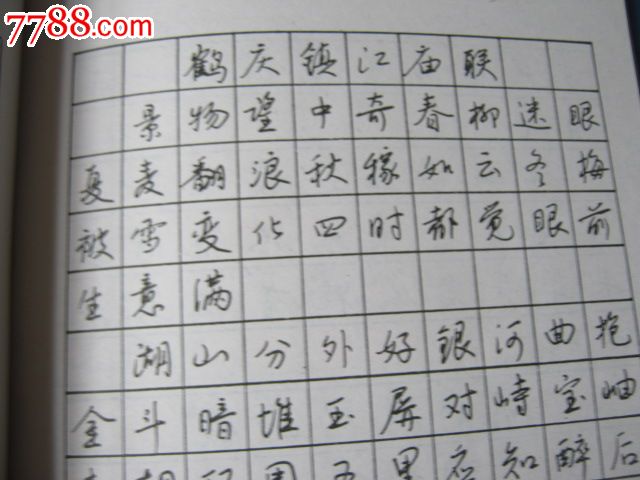 7788.com
鹤庆镇江庙联
景物望中奇春柳迷眼
夏麦翻浪秋稼如云冬梅
被雪变化四时都觉眼前
生意满
湖山分外好银河曲抱
金斗暗堆玉屏对峙宝岫
知醉后